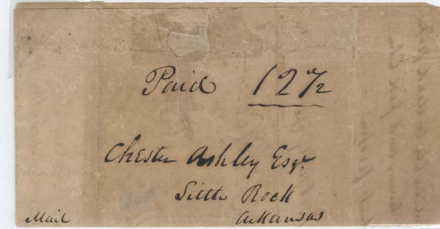 Paid 12 1/2
Chester Ashley Esqr.
Little Rock
Arkansas
Mail